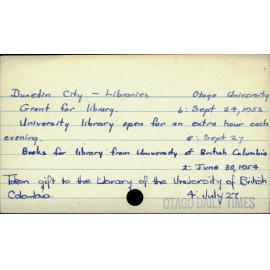 Dunedin City - Libraries Otago University
Grant for library. 6: Sept 24, 1952
University library open for an extra hour each
evening. 8: Sept 27
Books for library from University of British Columbia
2: June 30, 1954
Token gift to the Library of the University of British
Columbia. 4: July 27
OTAGO DAILY TIMES